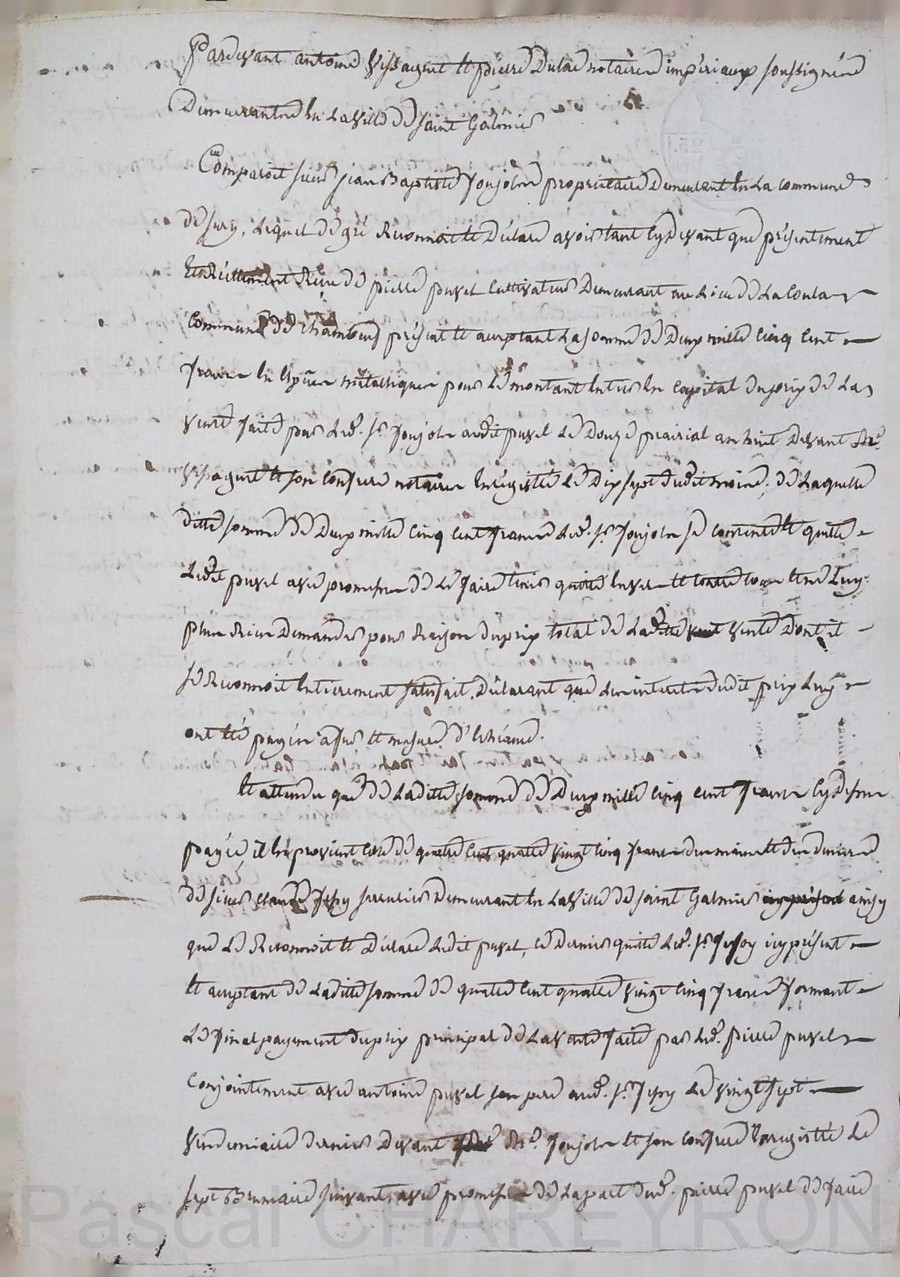 Pardevant antoine Vissaguet et pierre Dulac notaires impériaux soussignés
Demeurants En La Ville de Saint Galmier
Comparoit sieur jean Baptiste joujoln propriétaire Demeurant En La commune
de Sury, Lequel de gré Reconnoit et Déclare avoir tant cydevant que présentement
Et Réellement Reçu de pierre puvel cultivateur Demeurant au Lieu de La
commune de Chambeuf présent et acceptant La somme de Deux mille cinq cent
francs En Espèces métalliques pour Le montant Entier En capital du prix de La
Vente faite par Led. Sr. joujoln audit puvel Le Douze prairial an huit Devant Me.
Vissaguet et son confrere notaires Enregistré Le Dix sept dudit mois; de Laquelle
ditte somme de Deux mille cinq cent francs Led. Sr. joujoln se contente et quitte
Ledit puvel avec promesse de Le faire tenir quitte Envers et contre tous et ne Luy
plus Rien Demander pour Raison du prix total de Laditte vente Dont il
se Reconnoit Entierement satisfait, Déclarant que Les interets dudit prix Luy
ont été payés a fur et mesure d'Echéance.
Et attendu que de Laditte somme de Deux mille cinq cent francs cy dessus
payée il En provient celle de quatre cent quatre vingt cinq francs des mains et des deniers
de sieur claude serrurier Demeurant En La Ville de Saint Galmier ainsy
que Le Reconnoit et Déclare Ledit puvel, ce dernier quitte Led. Sr. icy présent
et acceptant de Laditte somme de quatre cent quatre vingt cinq francs formant
Le final payement du prix principal de La Vente faite par Led. pierre puvel
Conjointement avec antoine puvel son pere aud. Sr. Le Vingt sept
Vendemiaire dernier Devant Me. joujoln et son confrere Enregistré Le
sept Brumaire suivant, avec promesse de La part dud. pierre puvel de faire
Pascal CHAREYRON